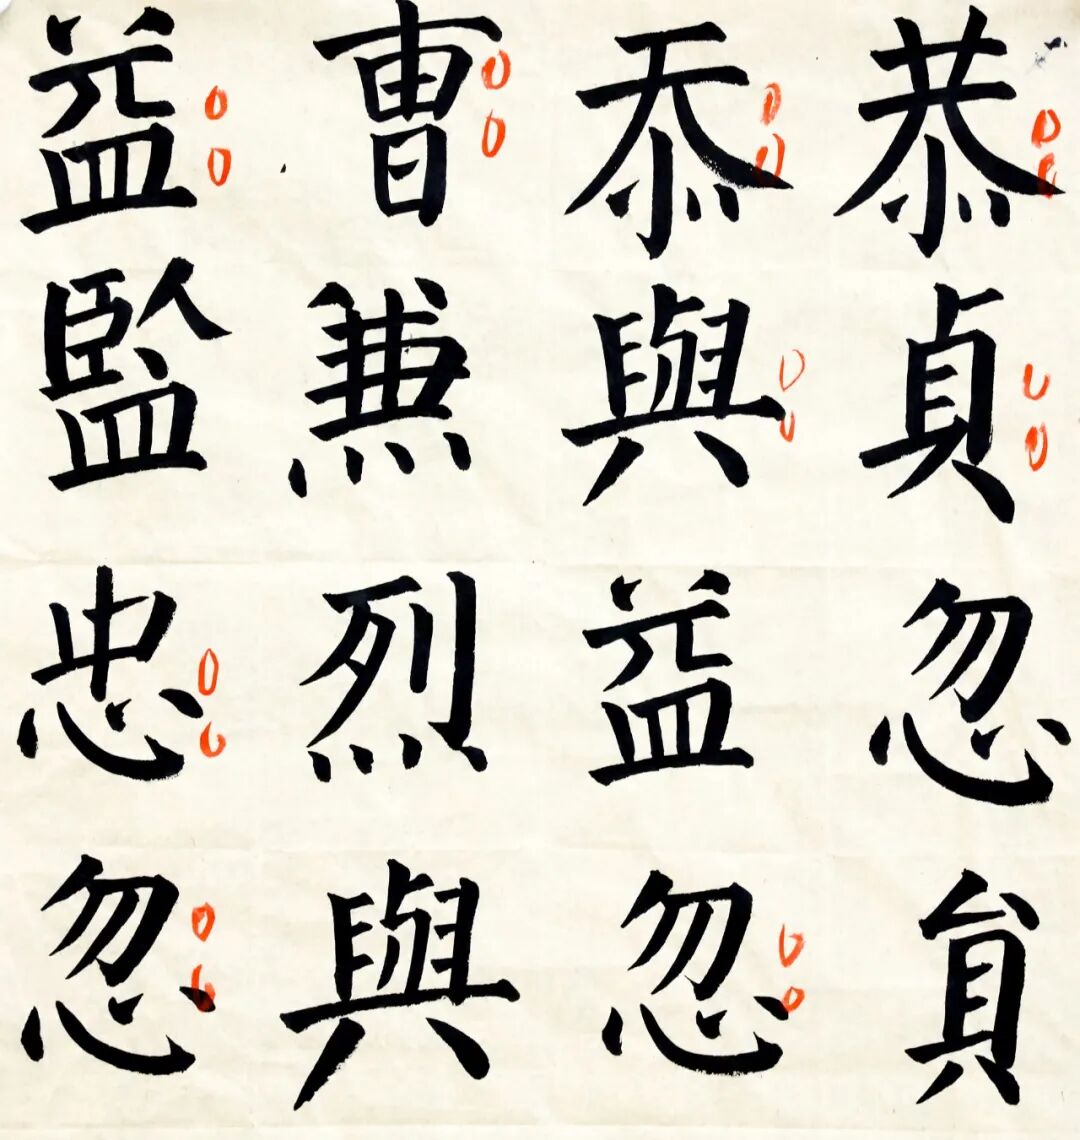 恭貞忽貟
忝與益忽
曺兼烈與
益監忠忽